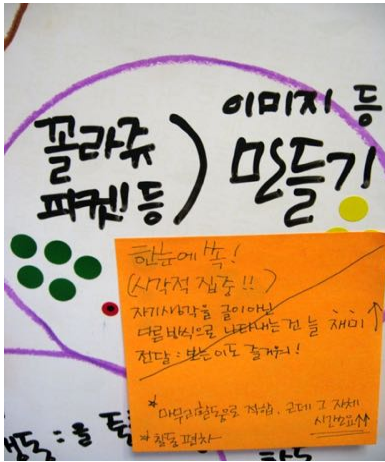 꼴라쥬
피켓등
)
이미지 등
만들기
한눈에 쏙!
(시각적 집중!!)
자기생각을 글이아닌
다른방식으로 나타내는건 늘 재미↑
전달: 보는이도 즐거워!
* 마무리활동으로 적합. 근데 그 자체
시간소요↑↑
* 활동 편차